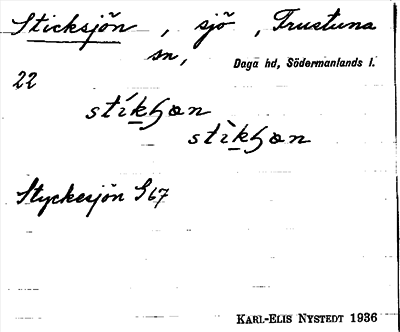 Sticksjön, sjö, Frustuna
sn,
Daga hd, Södermanlands l.
22
stíkɧœn
stìkɧœn
Styckesjön G67
KARL-ELIS NYSTEDT 1936